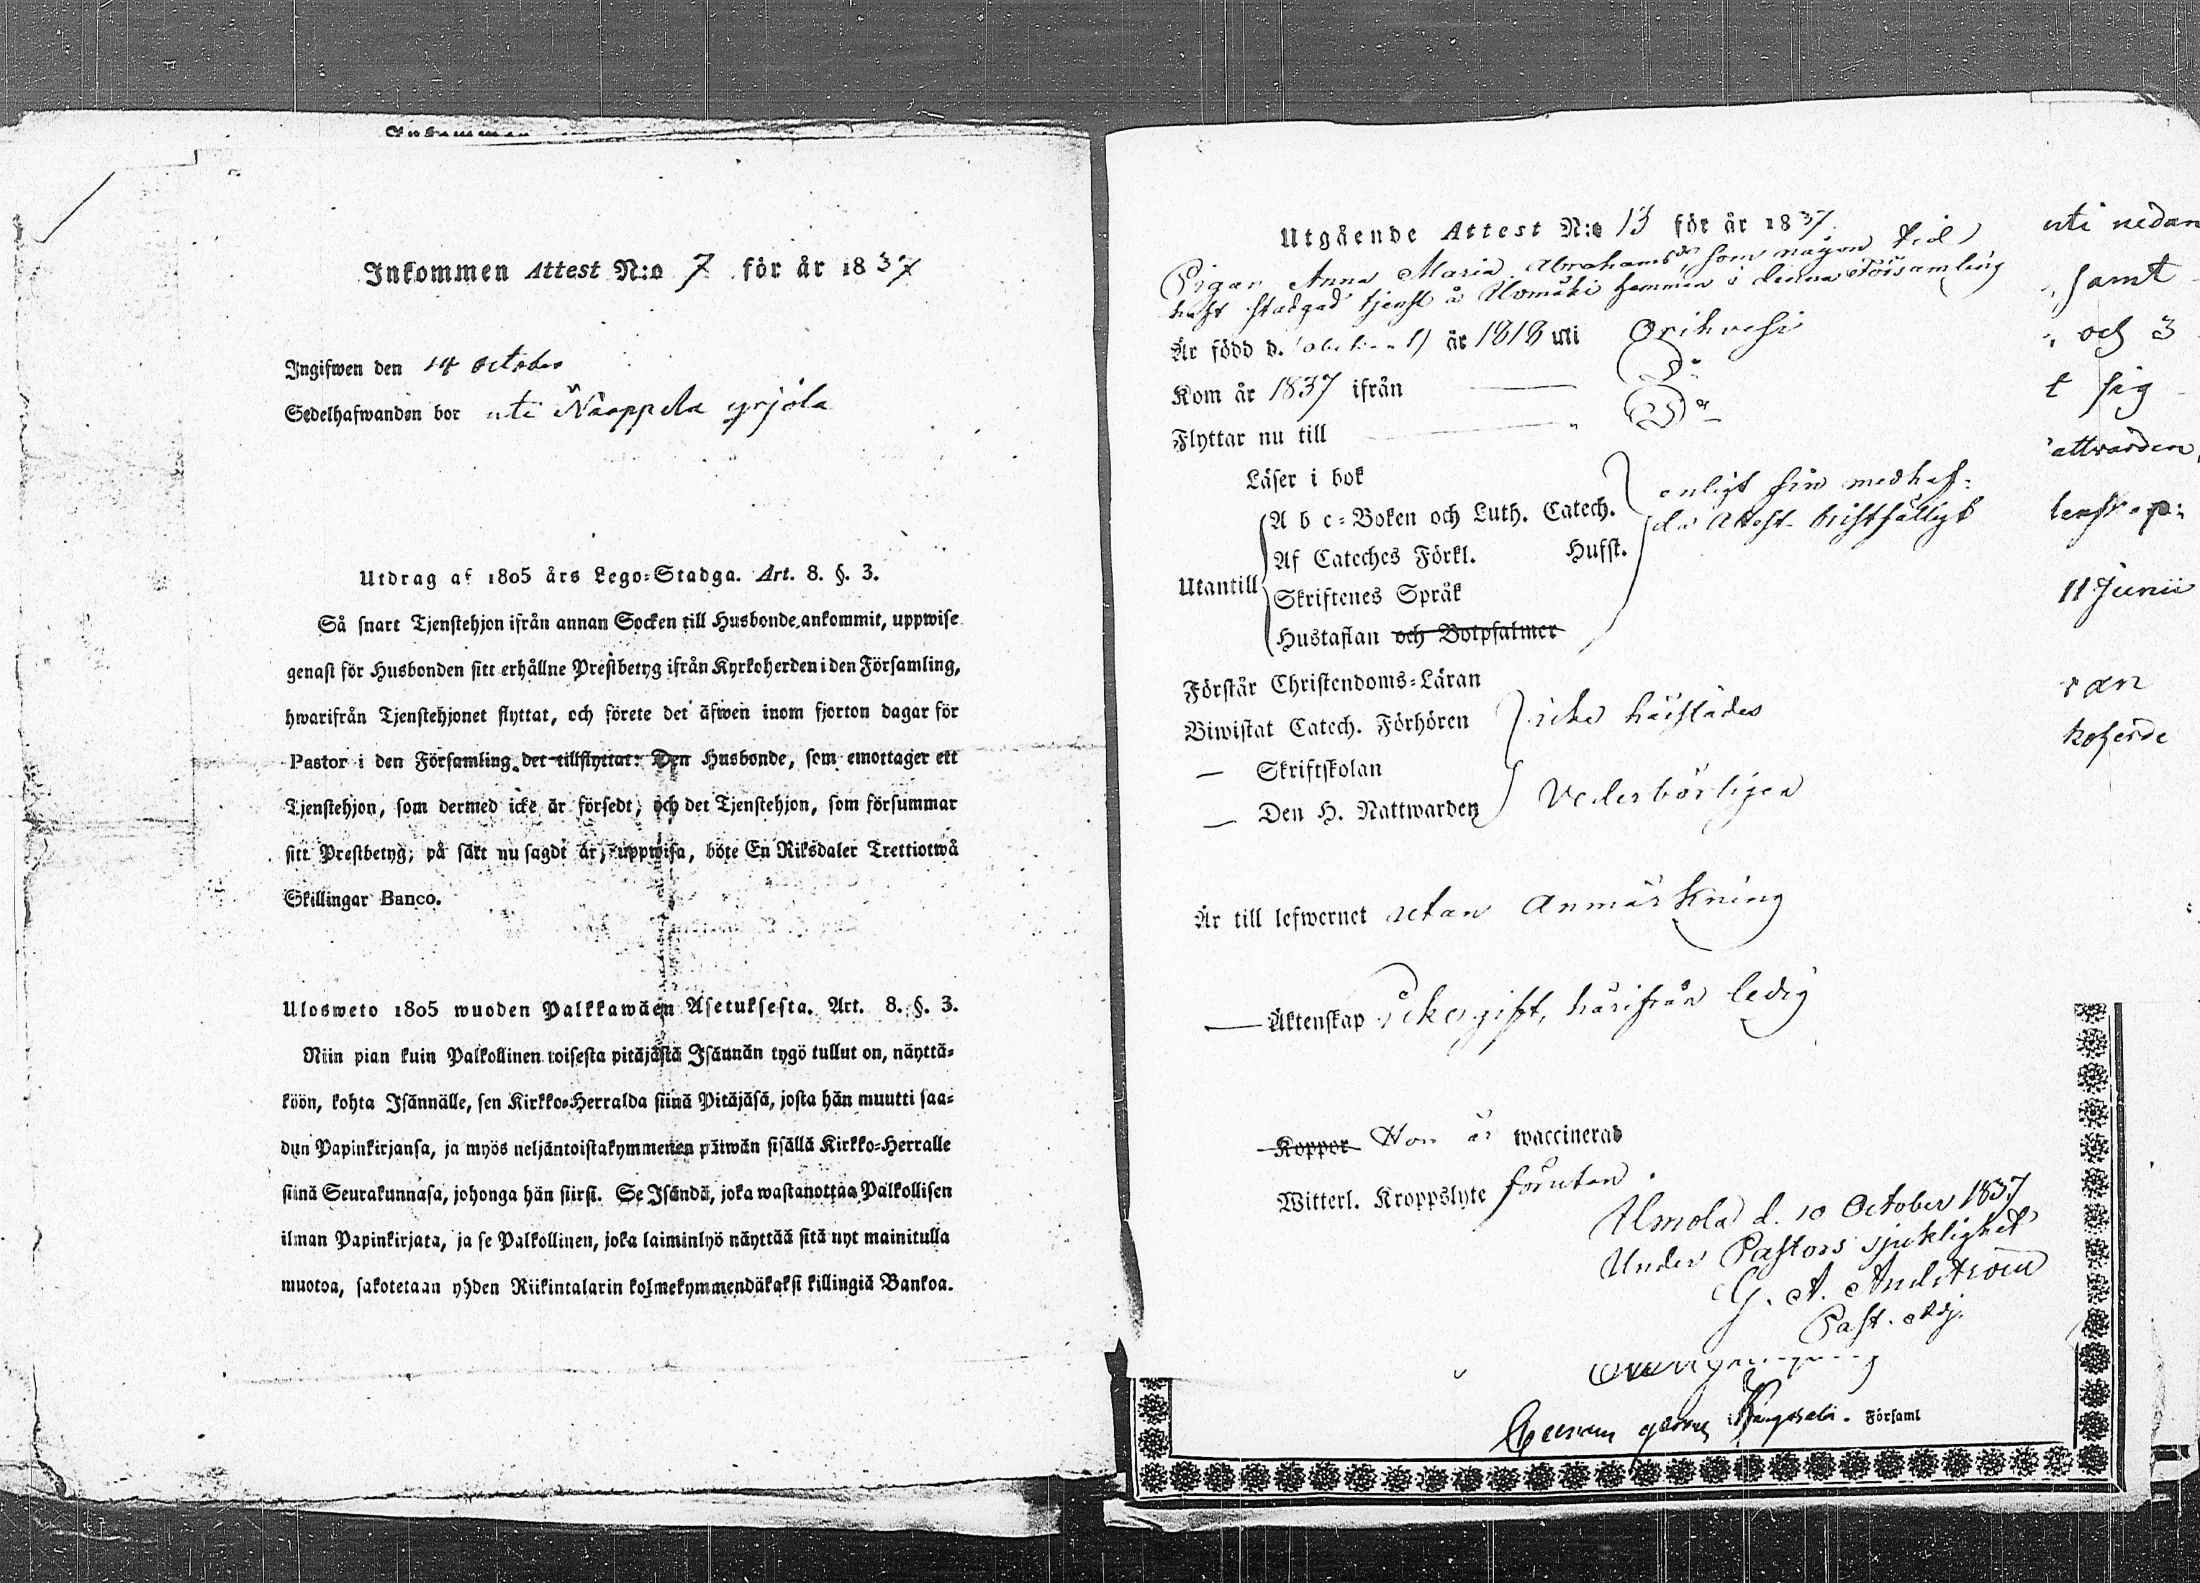 Inkommen Attest N:o 7 för år 1837
Ingifwen den 14 October
Sedelhafwanden bor uti Naappila yrjölä
Utdrag af 1805 års Lego-Stadga. Art. 8. §. 3.
Så snart Tjenstehjon ifrån annan Socken till Husbonde ankommit, uppwise
genast för Husbonden sitt erhållne Prestbetyg ifrån Kyrkoherden i den Församling,
hwarifrån Tjenstehjonet flyttat, och förete det äfwen inom fjorton dagar för
Pastor i den Församling det tillflyttat: Den Husbonde, som emottager ett
Tjenstehjon, som dermed icke är försedt, och det Tjenstehjon, som försummar
sitt Prestbetyg, på sätt nu sagdt är, uppwisa, böte En Riksdaler Trettiotwå
Skillingar Banco.
Ulosweto 1805 wuoden Palkkawäen Asetuksesta. Art. 8. §. 3.
Niin pian kuin Palkollinen toisesta pitäjästä Isännän tygö tullut on, näyttä-
köön, kohta Isännälle, sen Kirkko-Herralda siinä Pitäjäsä, josta hän muutti saa-
dun Papinkirjansa, ja myös neljäntoistakymmenen päiwän sisällä Kirkko-Herralle
siinä Seurakunnasa, johonga hän siirsi. Se Isändä, joka wastanottaa Palkollisen
ilman Papinkirjata, ja se Palkollinen, joka laiminlyö näyttää sitä nyt mainitulla
muotoa, sakotetaan yhden Riikintalarin kolmekymmendäkaksi killingiä Bankoa.
Utgående Attest N:o 13 för år 1837
Pigan Anna Maria Abrahamsdr som någon tid
haft stadgad tjenst å Uomäki hemman i denna Församling
Är född d. år 1818 uti Orihvesi
Kom år 1837 ifrån Do
Flyttar nu till Do
Läser i bok
A b c-Boken och Luth. Catech.
Af Cateches Förkl. Hufst.
Utantill
Skriftenes Språk
Hustaflan och Botpsalmer
enligt sin medhaf-
da Attest bristfälligt
Förstår Christendoms-Läran
Biwistat Catech. Förhören icke härstädes
— Skriftskolan
— Den H. Nattwarden Vederbörligen
Är till lefwernet utan Anmärkning
— Äktenskap icke gift, härifrån ledig
Koppor Hon är waccinerad
Witterl. Kroppslyte förutan.
Urnola d. 10 October 1837
Under Pastors sjuklighet
G. A. Andström
Past. Adj.
Kangasala. Församl
uti nedan
samt
och 3
t sig
attvarden,
11 Junii